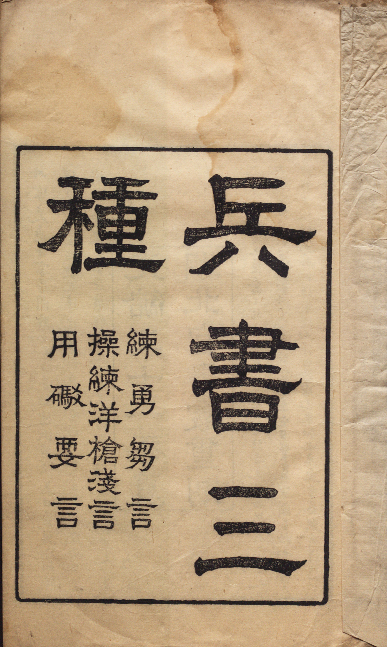 兵書三
種
練勇芻言
操練洋槍淺言
用礮要言